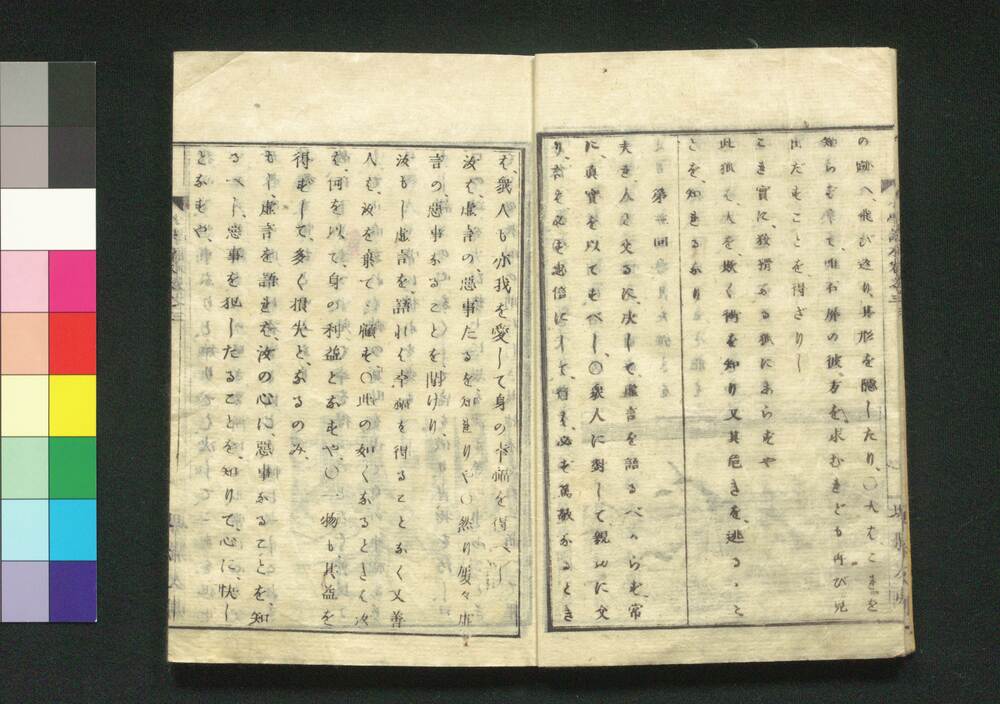 の蹤へ、飛び返り、其形を隠したり、〇犬はこれを
知らず、唯右屏の彼方を求むれども再び見
出だすことを、得ざりし
こは實に、狡猾なる狐にあらずや
此狐も、犬を、欺く術を知り又其危きを、逃るゝこ
とを、知れるなり
第三回
夫れ人と交るに、決して虚言を語るべからず、常
に、眞實を以てすべし、〇衆人に對して親切に交
り、言ふ必ず忠信にして、行は、必ず篤敬なるとき
は、衆人も亦我を愛して身の幸福を得べし
汝は、虚言の、惡事たるを知れりや〇然り屡々虚
言の、惡事なることを、聞けり
汝もし虚言を、語れば、幸福を得ることなく又善
人も、汝を棄て、顧ず〇此の如くなるときは、汝
は、何を以て、身の利益となすや〇一物も、其益を
得ずして、多く損失と、なるのみ、
若し、虚言を語れば、汝の心に、惡事なることを、知
るべし、惡事を犯したることを、知りて、心に、快し
となすや、